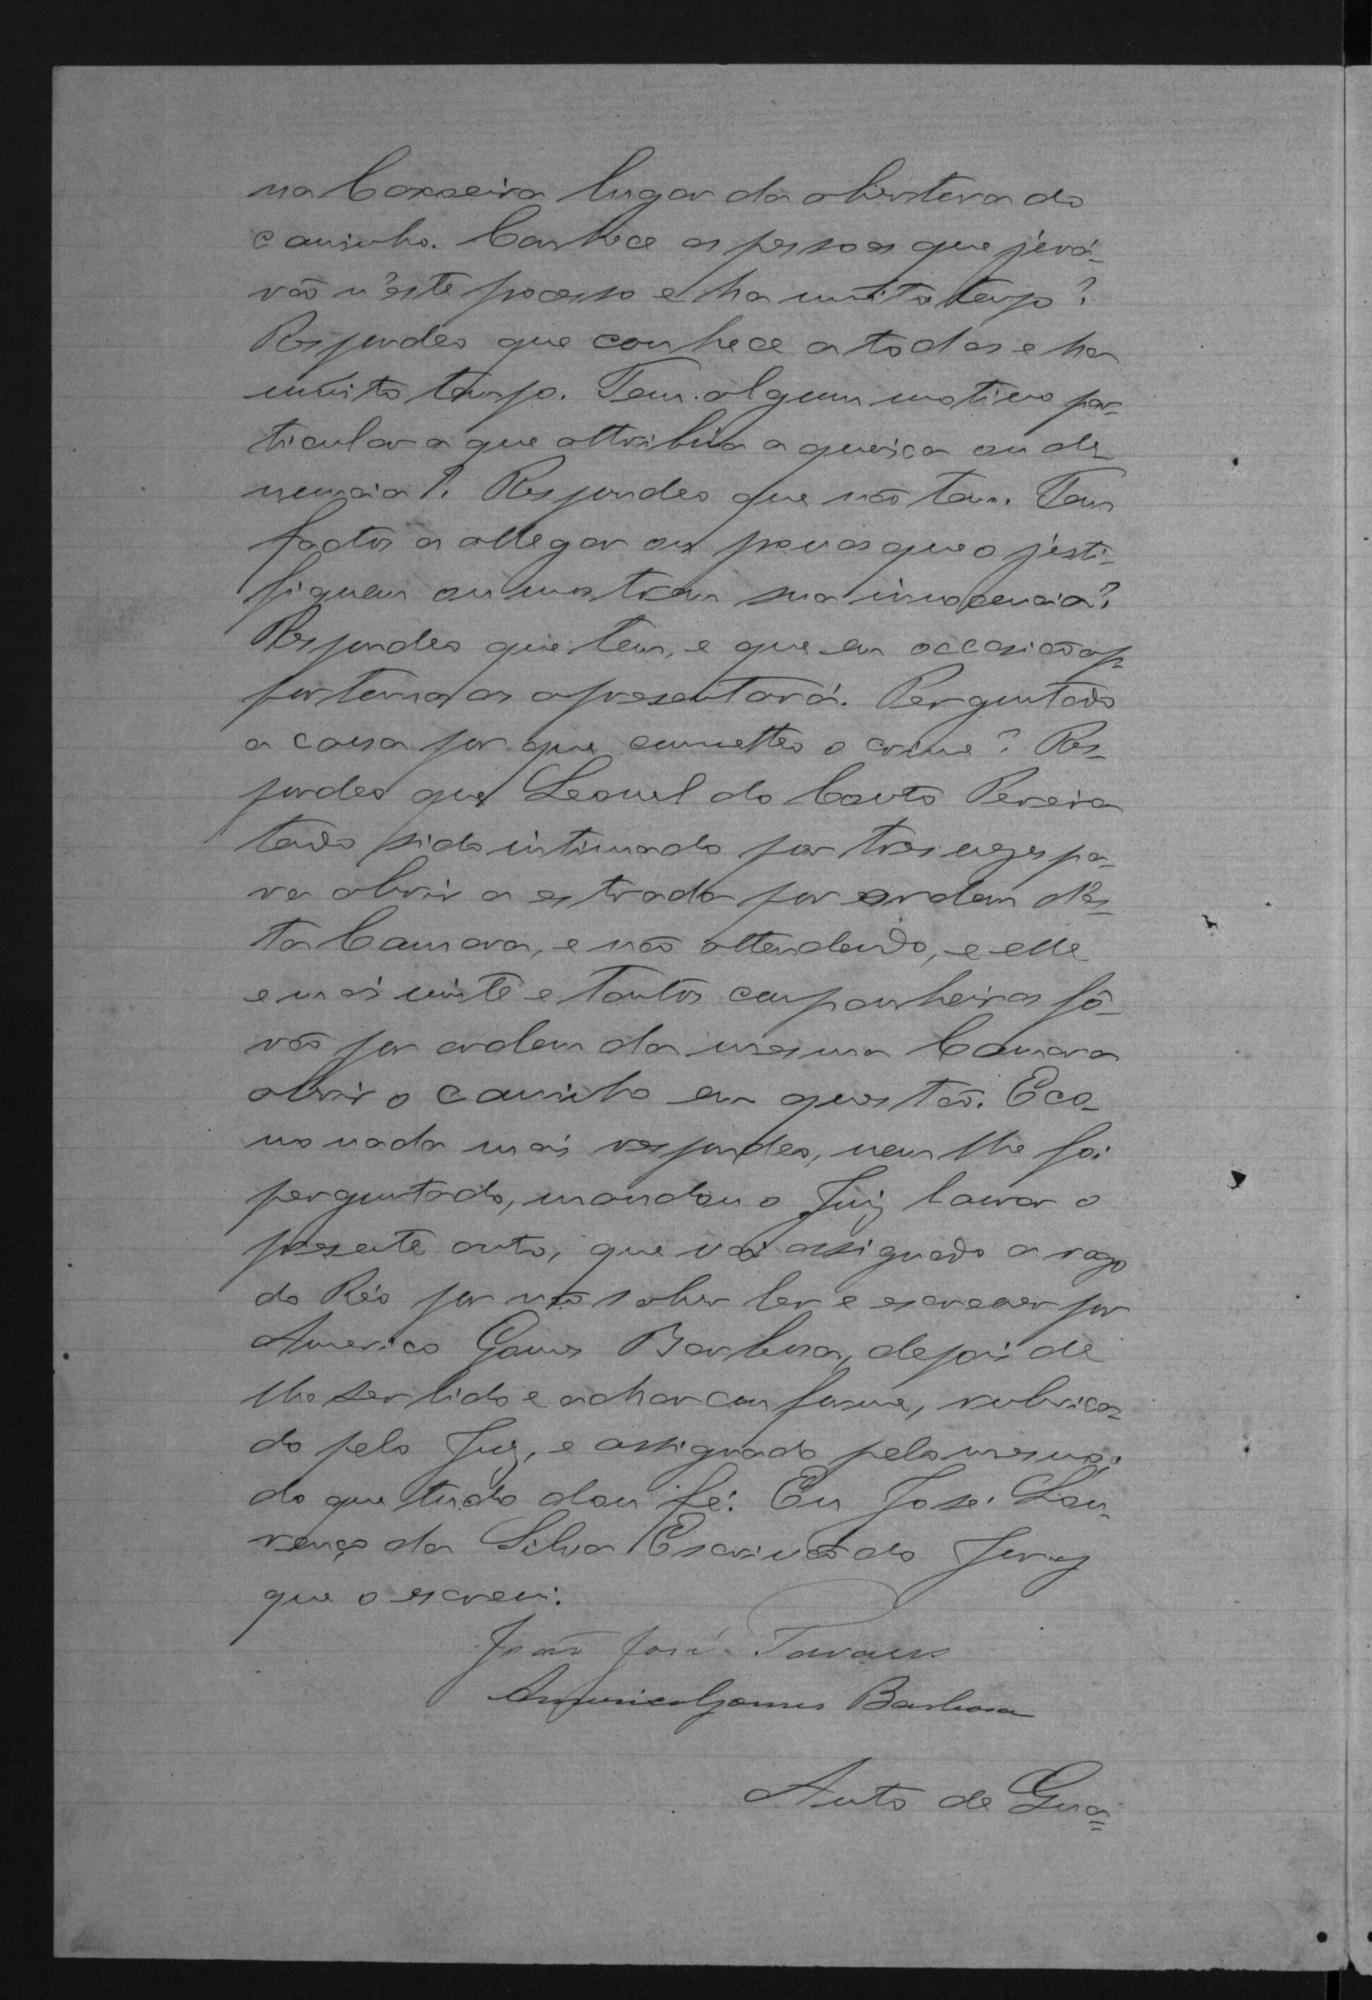 na Coxoeira lugar da abertera do
caminho. Conhece as pessoas que jerá-
rão n'este processo e ha muito tempo?
Respondeo que conhece a todas e ha
muito tempo. Tem algum motivo par-
ticular a que attribúa a queixa ou de-
nuncia? Respondeo que não tem. Tem
factos a allegar ou provas que o justi-
fiquem ou mostrem sua innocencia?
Respondeo que tem, e que em occasião op-
portuna as apresentará. Perguntado
a causa por que cometteo o crime? Res-
pondeo que Leonel do Couto Pereira
tendo sido intimado por tres vezes pa-
ra abrir a estrada por ordem des-
ta Camara, e não attendendo, e elle
e mais vinte e tantos companheiros fô-
rão por ordem da mesma Camara
abrir o caminho em questão. E co-
mo nada mais respondeo, nem lhe foi
perguntado, mandou o Juiz lavrar o
presente auto, que vai assignado a rogo
do Réo por não saber ler e escrever por
Americo Gomes Barbosa, depois de
lhe ser lido e achar conforme, rubrica-
do pelo Juiz, e assignado pelo mesmo;
do que tudo dou fé. Eu José Lou-
renço da Silva Escrivão do Jury
que o escrevi.
João José Tavares
Americo Gomes Barbosa
Auto de Qua-